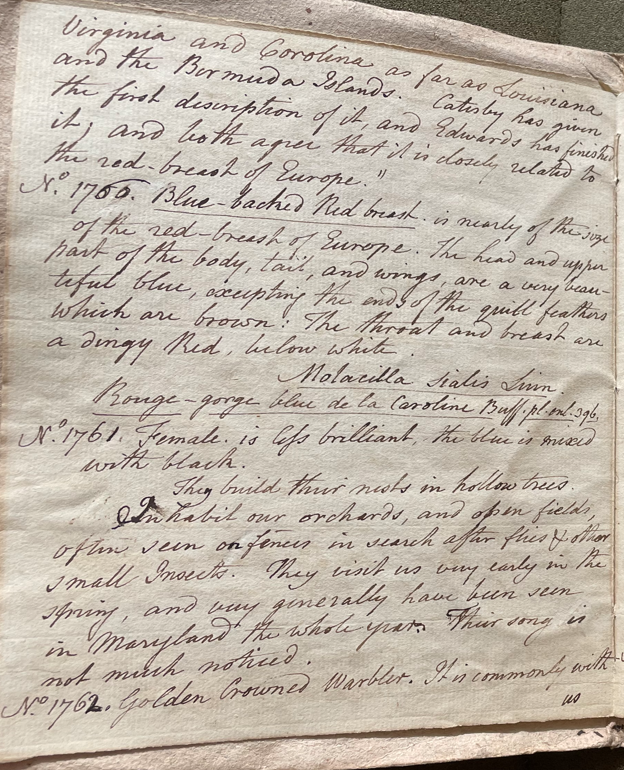 Virginia and Carolina as far as Louisiana
and the Bermuda Islands. Catesby has given
the first description of it, and Edwards has finished
it; and both agree that it is closely related to
the red-breast of Europe."
No. 1760. Blue-backed Red breast. is nearly of the size
of the red-breast of Europe. The head and upper
part of the body, tail, and wings, are a very beau-
tiful blue, excepting the ends of the quill feathers
which are brown: The throat and breast are
a dingy Red, below white.
Motacilla sialis Linn.
Rouge-gorge blue de la Caroline Buff. pl. enl. 396.
No. 1761. Female. is less brilliant, the blue is mixed
with black.
They build their nests in hollow trees.
Inhabit our orchards, and open fields,
often seen on fences in search after flies & other
small Insects. They visit us very early in the
spring, and very generally have been seen
in Maryland the whole year. Their song is
not much noticed.
No. 1762. Golden Crowned Warbler. It is commonly with
us